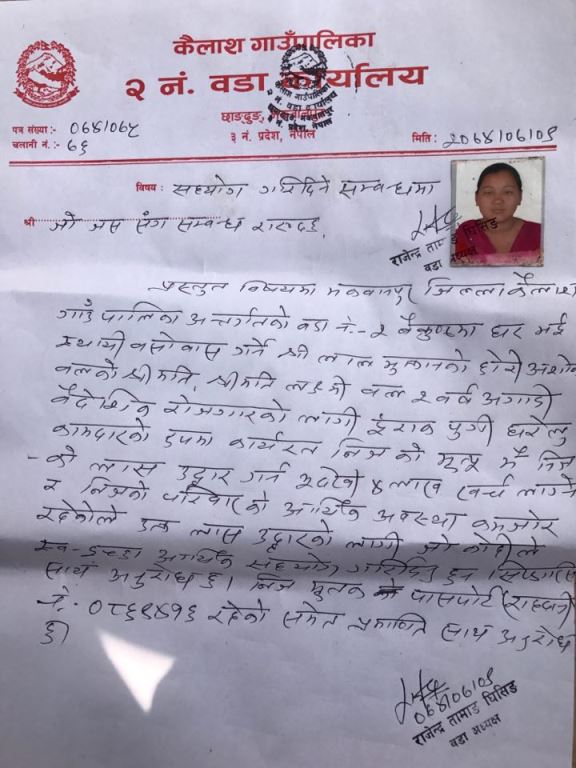 कैलाश गाउँपालिका
२ नं. वडा कार्यालय
३ नं. प्रदेश, नेपाल
पत्र संख्या :-
चलानी नं. :- ६६
मिति :-
विषय: सहयोग गरिदिने सम्बन्धमा
श्री जो जस संग सम्बन्ध राख्दछ,
राजेन्द्र तामाङ घिसिङ
वडा अध्यक्ष
प्रस्तुत विषयमा मकवानपुर जिल्ला कैलाश
गाउँपालिका अन्तर्गतको वडा नं.- २ मा घर भई
स्थायी बसोबास गर्ने श्री लाल को छोरा
श्रीमति, श्रीमति २ वर्ष अगाडी
वैदेशिक रोजगारको लागी ईराक पुगी घरेलु
कामदारको रुपमा कार्यरत निजको मृत्यु भै निज
- को लास उद्दार गर्न ४ लाख खर्च लाग्ने
र निजको परिवारको आर्थिक अवस्था कमजोर
रहेकोले उक्त लास उद्दारको लागी जो कोहीले
स्व-इच्छा आर्थिक सहयोग गरिदिनु हुन सिफारिस
साथ अनुरोध छ। निज मृतक को पासपोर्ट (राहदानी)
नं. रहेको समेत प्रमाणित साथ अनुरोध
छ।
राजेन्द्र तामाङ घिसिङ
वडा अध्यक्ष